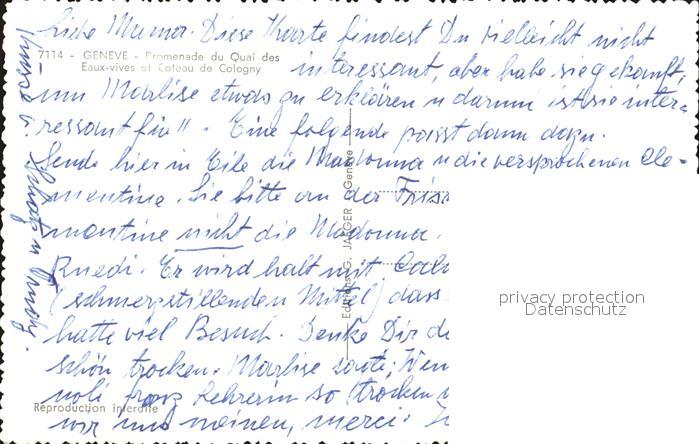 Liebe Muma. Diese Karte findest Du vielleicht nicht
7114 - GENEVE - Promenade du Quai des
Eaux-vives et Coteau de Cologny
interessant, aber habe sie gekauft,
um Marlise etwas zu erklären u darum ist sie inter-
ressant für !! Eine folgende passt dann dazu.
Sende hier in Eile die Madonna u die versprochenen Cle-
mentine. Sie bitte an der Fris
mentine nicht die Madonna.
Ruedi. Er wird halt mit
(schmerzstillenden Mittel) dass
hatte viel Besuch. Denke Dir de
schön trocken. Marlise sagte; Wen
franz Lehrerin so (trocken
wir uns meinen, merci.
Editions G. JAEGER Genève
Reproduction interdite
privacy protection
Datenschutz